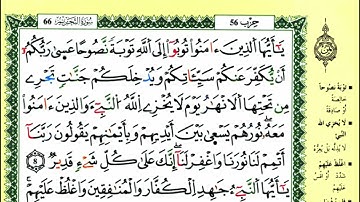 حزب 56
سورة التحريم 66
يَٰٓأَيُّهَا ٱلَّذِينَ ءَامَنُواْ تُوبُوٓاْ إِلَى ٱللَّهِ تَوْبَةً نَّصُوحًا عَسَىٰ رَبُّكُمُۥٓ
أَنْ يُّكَفِّرَ عَنكُمْ سَيِّـَٔاتِكُمْ وَيُدْخِلَكُمْ جَنَّٰتٍ تَجْرِے
مِن تَحْتِهَا ٱلَانْهَٰرُ يَوْمَ لَا يُخْزِے ٱللَّهُ ٱلنَّبِيٓءَ وَٱلَّذِينَ ءَامَنُواْ
مَعَهُۥ نُورُهُمْ يَسْعَىٰ بَيْنَ أَيْدِيهِمْ وَبِأَيْمَٰنِهِمْ يَقُولُونَ رَبَّنَآ
أَتْمِمْ لَنَا نُورَنَا وَٱغْفِرْ لَنَآ إِنَّكَ عَلَىٰ كُلِّ شَےْءٍ قَدِيرٌ 8
يَٰٓأَيُّهَا ٱلنَّبِيٓءُ جَٰهِدِ ٱلْكُفَّارَ وَٱلْمُنَٰفِقِينَ وَٱغْلُظْ عَلَيْهِمْ
توبة نصوحا
خالصة
لا يخزي الله
النبي
اغلظ عليهم